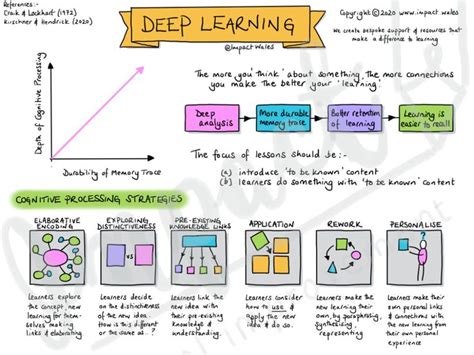 References:-
Craik & Lockhart (1972)
Kirschner & Hendrick (2020)
DEEP LEARNING
@Impact Wales
Copyright © 2020 www.impact.wales
We create bespoke support & resources that
make a difference to learning
Depth of Cognitive Processing
Durability of Memory Trace
The more you 'think' about something, the more connections
you make the better your 'learning'.
Deep
analysis
More durable
memory trace
Better retention
of learning
Learning is
easier to recall
The focus of lessons should be:-
(a) introduce 'to be known' content
(b) learners do something with 'to be known' content
COGNITIVE PROCESSING STRATEGIES
ELABORATIVE
ENCODING
Learners explore
the concept, new
learning for them-
selves making
links & elaborating
EXPLORING
DISTINCTIVENESS
vs
Learners decide
on the distinctiveness
of the new idea.
How is this different
or the same as..?
PRE-EXISTING
KNOWLEDGE LINKS
Learners link the
new idea with
their pre-existing
knowledge &
understanding.
APPLICATION
Learners consider
how to use &
apply the new
idea & do so.
REWORK
Learners make the
new learning their
own, by paraphrasing,
synthesising,
representing
PERSONALISE
Learners make
their own personal
links & connections
with the new
learning so it is true
to them.